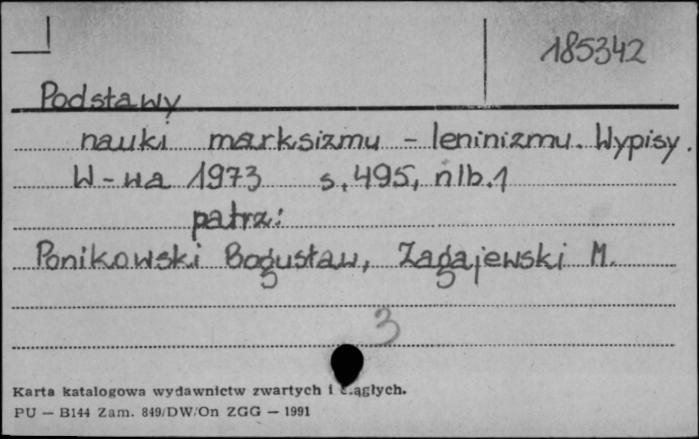 185342
Podstawy
nauki marksizmu - leninizmu. Wypisy.
W-wa 1973 s. 495, nlb. 1
patrz:
Ponikowski Bogusław, Zagajewski M.
3
Karta katalogowa wydawnictw zwartych i ciągłych.
PU — B144 Zam. 849/DW/On ZGG — 1991